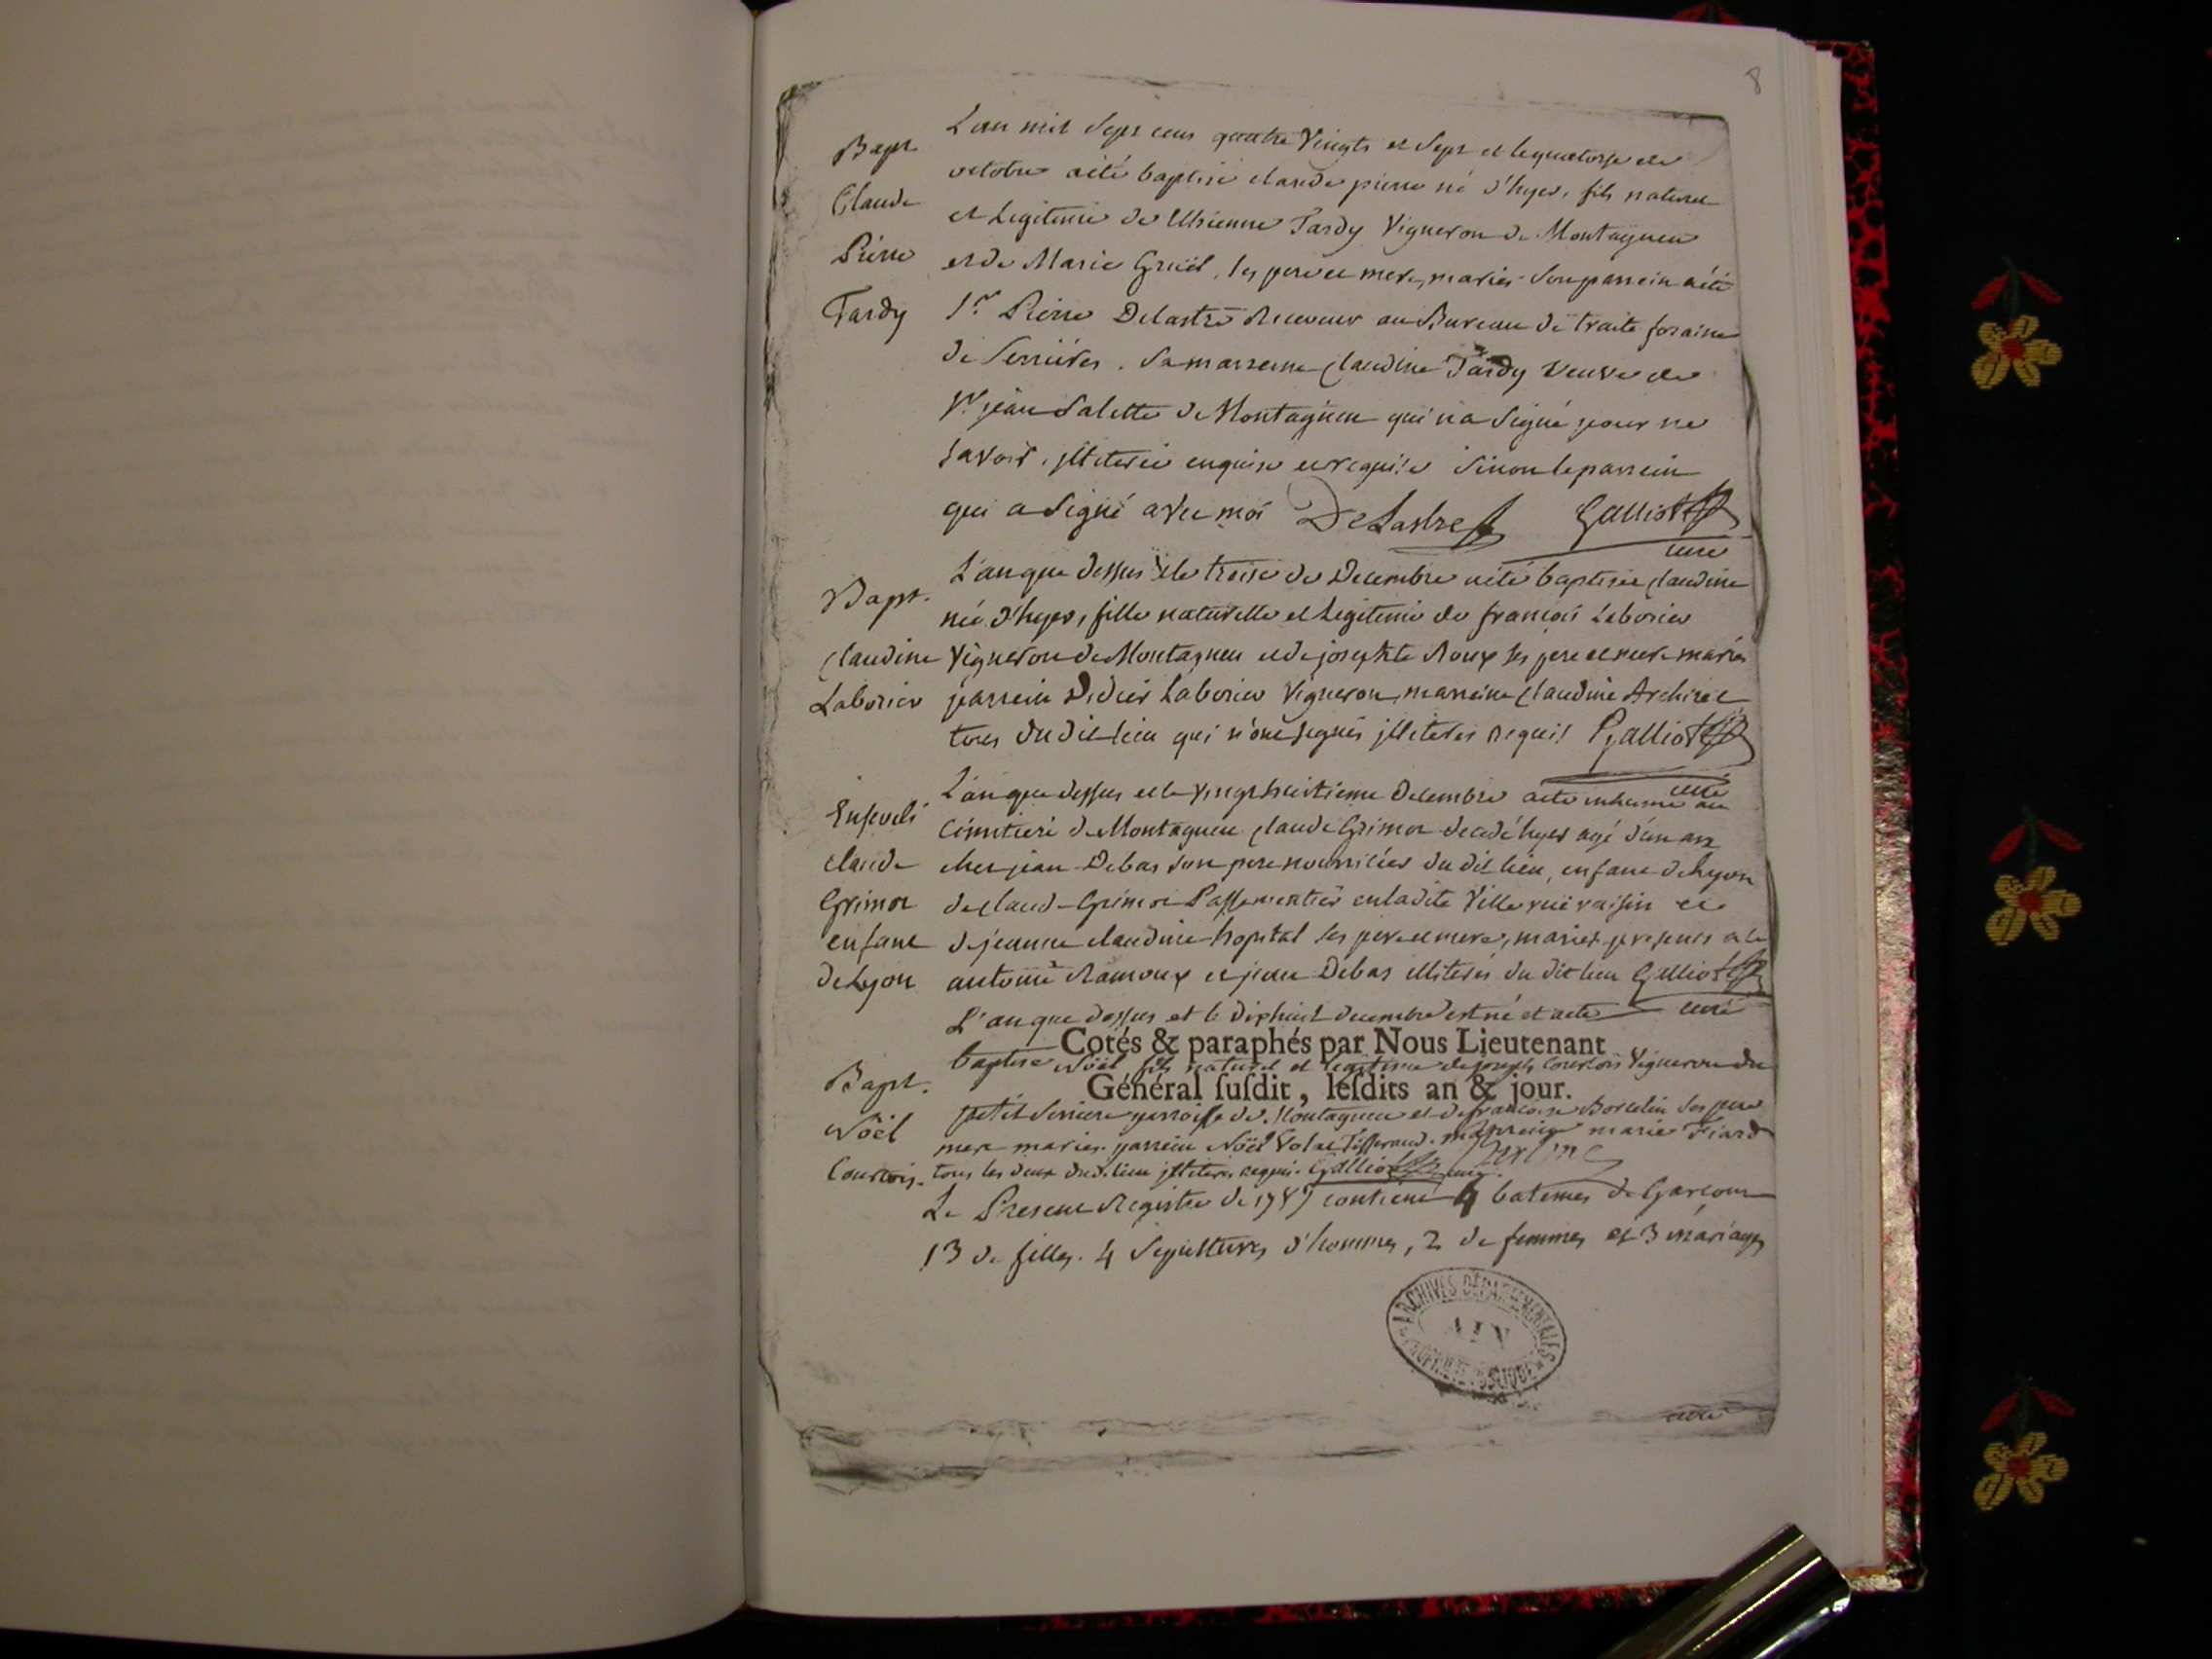 8
Bapt
Claude
Pierre
Tardy
L'an mil sept cens quatre Vingts et Sept et le quatorse de
octobre aété baptisé claude pierre né d'hyer, fils naturel
et Legitime de Etienne Tardy Vigneron de Montagneu
et de Marie Gruël, ses pere et mere, mariés. Son parrein aété
Sr. Pierre Delastre Receveur au Bureau de traite foraine
de Serriéres. Sa marreine Claudine Tardy veuve de
Sr. jean Salette de Montagneu qui n'a Signé pour ne
savoir, jlliterée enquise et requise Sinon le parrein
qui a Signé avec moi DeLastre Galliot
curé
Bapt.
claudine
Laborier
L'an que dessus et le treise de Decembre aété baptisée claudine
née d'hyer, fille naturelle et Legitime de françois Laborier
Vigneron de Montagneu et de josephte Roux ses pere et mere mariés
parrein Didier Laborier Vigneron, marreine claudine Architec
tures du dit lieu qui n'ont signés jlliterés requis Galliot
curé
Enseveli
claude
Grimot
enfant
de Lyon
L'an que dessus et le vingt huitieme Decembre aété inhumé au
cimitiere de Montagneu claude Grimot decedé hyer agé d'un an
chez jean Debas son pere nourricier du dit lieu, enfant de Lyon
de claude Grimot Passementier en ladite Ville rüe raisin et
de jeanne claudine hopital ses pere et mere, mariés presents a le
antoine Ramoux et jean Debas illiterés du dit lieu Galliot
curé
Bapt.
Noël
Courtois.
L'an que dessus et le dixhuit decembre est né et aété
baptisé Noël fils naturel et legitime de joseph Courtois Vigneron du
Cotés & paraphés par Nous Lieutenant
Général susdit, lesdits an & jour.
petit Serriere parroisse de Montagneu et de francoise Borcelin ses pere
mere mariés. parrein Noël Volat Tisserand. marreine marie Fiard
tous les deux du d. lieu jlliterés requis. Galliot curé.
Le Present Registre de 1787 contient 4 batemes de Garcons
13 de filles. 4 Sepultures d'hommes, 2 de femmes et 3 mariages
ARCHIVES DÉPARTEMENTALES
AIN
PROPRIÉTÉ PUBLIQUE
curé